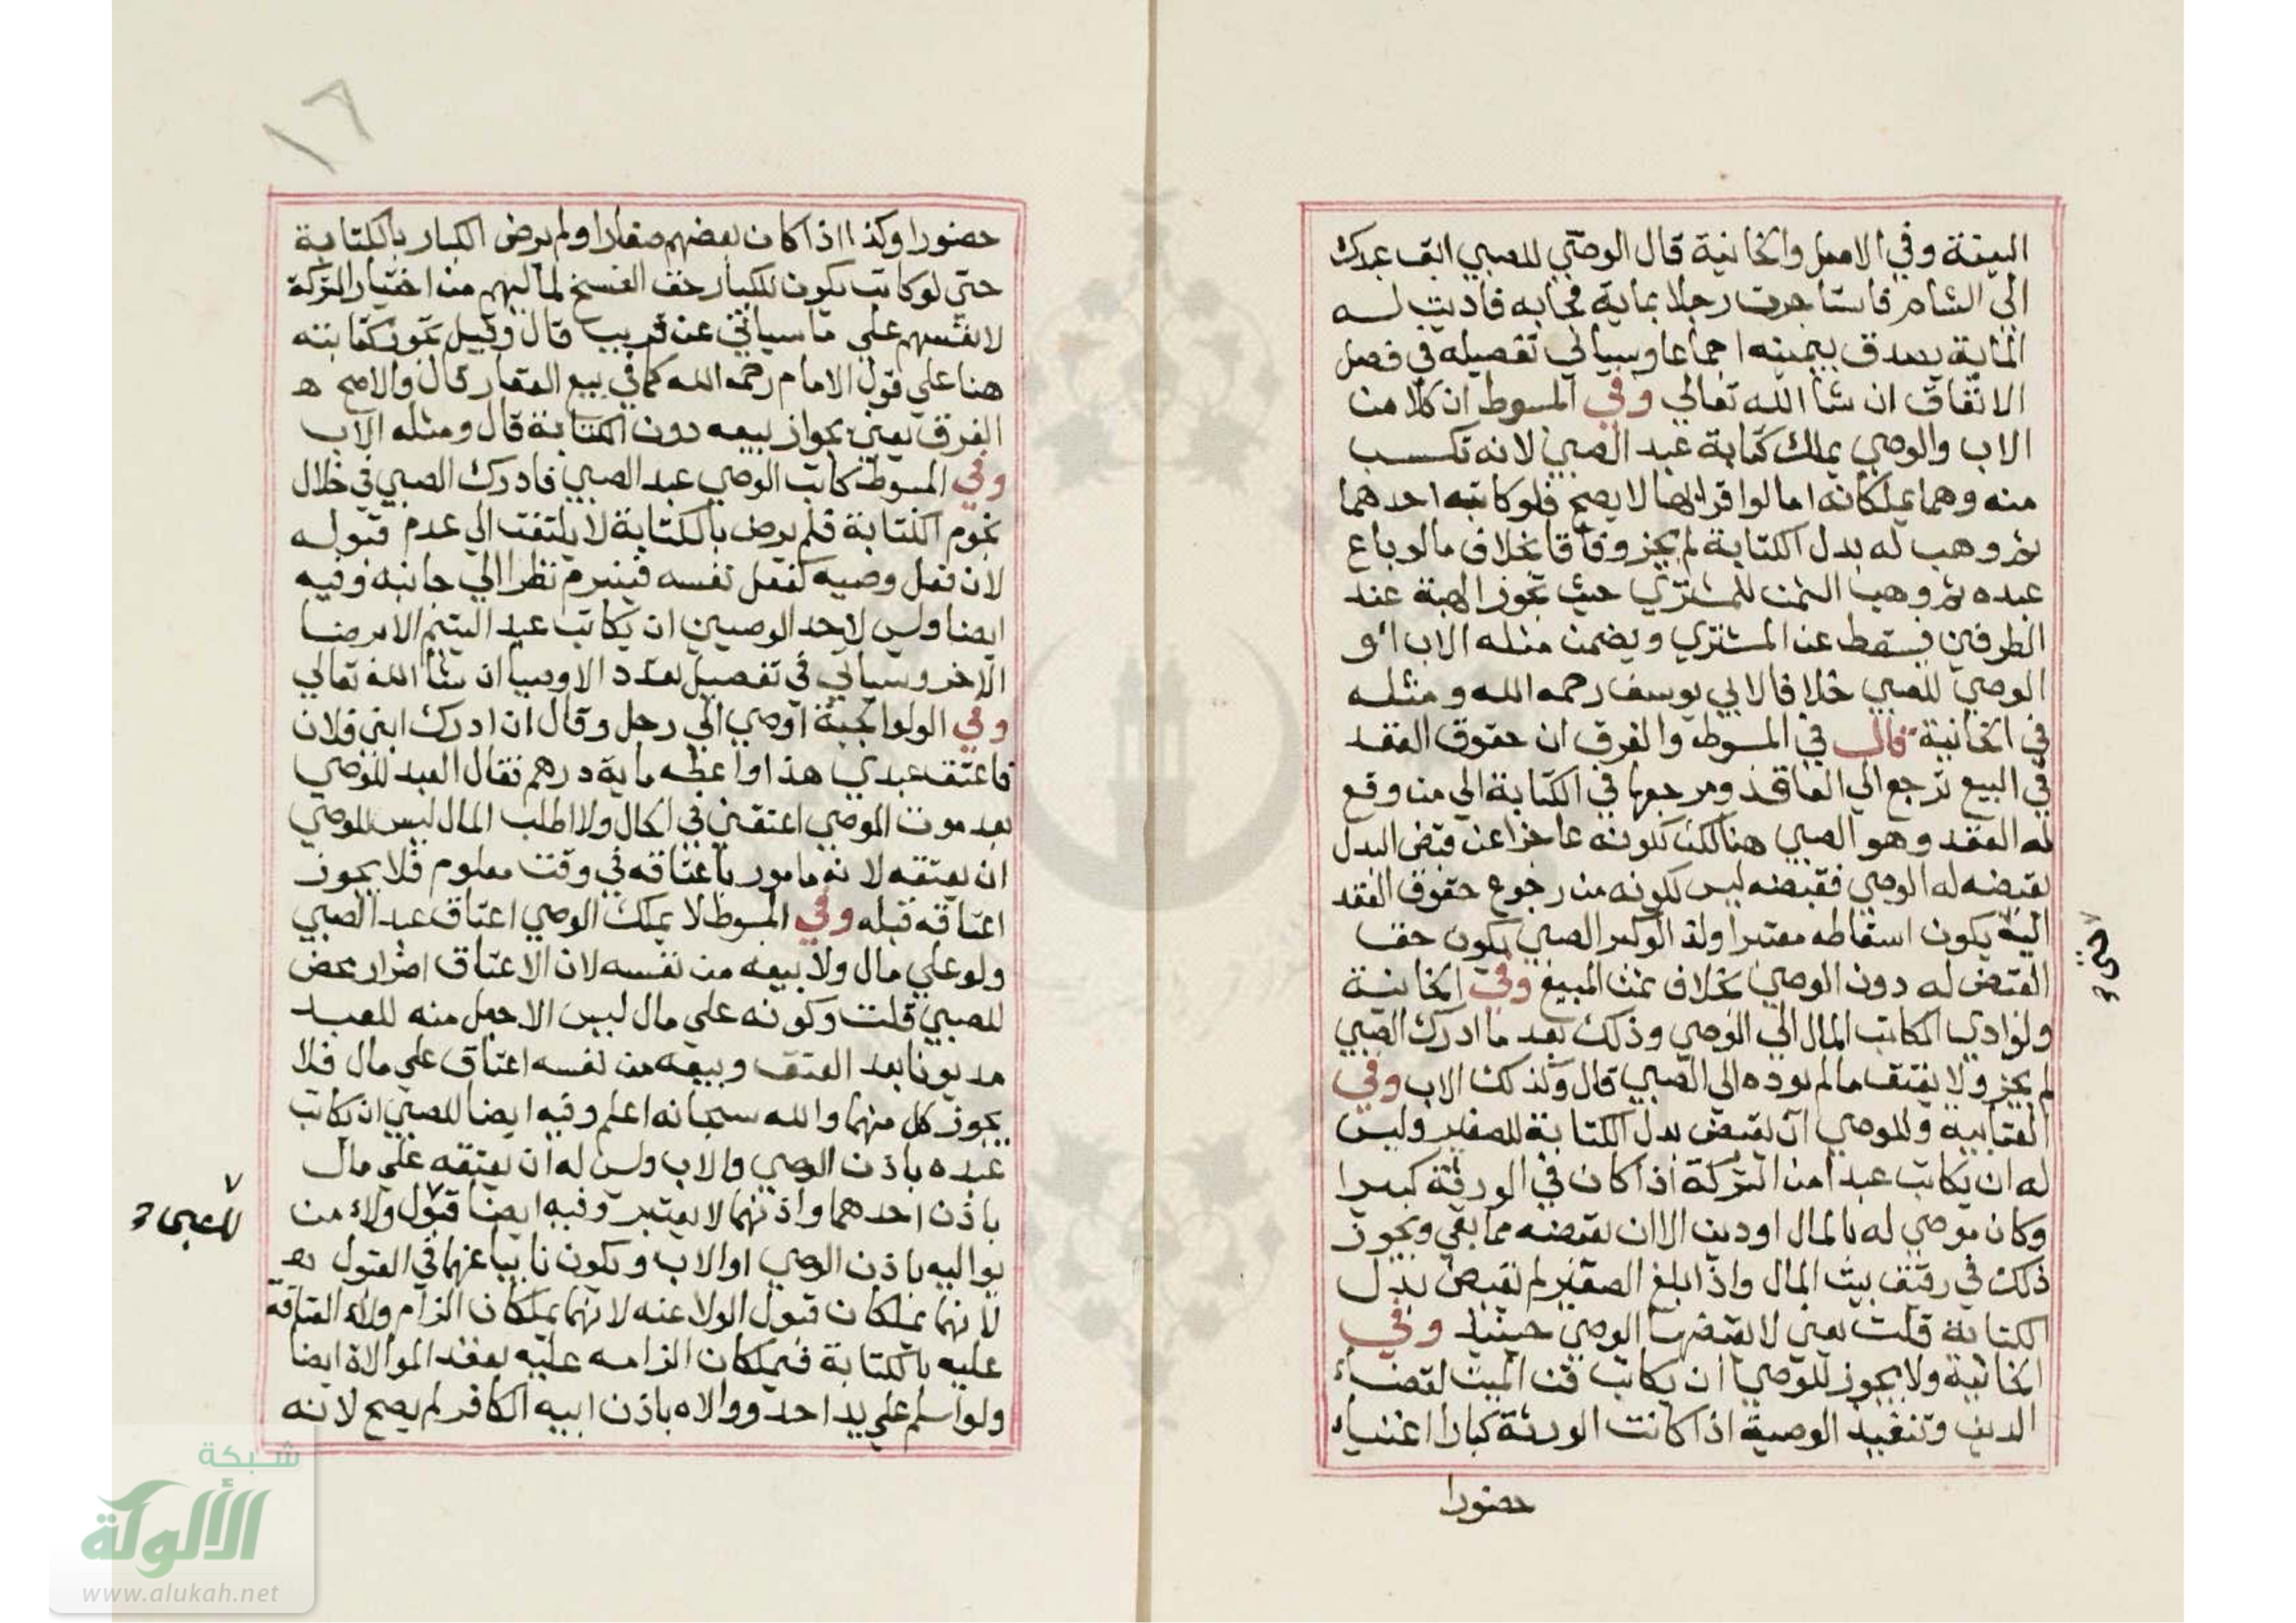 البينة وفي الاصل والخانية قال الوصي للصبي ابق عبدك
الي الشام فاستاجرت رجلا بماية فجابه فاديت له
الماية يصدق بيمينه اجماعا وسياتي تفصيله في فصل
الانفاق ان شا الله تعالي وفي المبسوط ان كلا من
الاب والوصي يملك كتابة عبد الصبي لانه تكسب
منه وهما يملكانه اما لو اقرا بها لا يصح فلو كاتبه احدهما
ثم وهب له بدل الكتابة لم يجز وفاقا بخلاف ما لو باع
عبده ثم وهب الثمن للمشتري حيث تجوز الهبة عند
الطرفين فيسقط عن المشتري ويضمن مثله الاب او
الوصي للصبي خلافا لابي يوسف رحمه الله ومثله
في الخانية قال في المبسوط والفرق ان حقوق العقد
في البيع ترجع الي العاقد ومرجعها في الكتابة الي من وقع
له العقد وهو الصبي هنا لكن لكونه عاجزا عن قبض البدل
يقبضه له الوصي فقبضه ليس لكونه من رجوع حقوق العقد
اليه يكون اسقاطه معتبرا ولذا لو كبر الصبي يكون حق
القبض له دون الوصي بخلاف ثمن المبيع وفي الخانية
ولو ادي المكاتب المال الي الوصي وذلك بعد ما ادرك الصبي
لم يجز ولا يعتق ما لم يوده الي الصبي قال وكذلك الاب وفي
العتابيه وللوصي ان يقبض بدل الكتابة للصغير وليس
له ان يكاتب عبدا من التركة اذا كان في الورثة كبيرا
وكان موصي له بالمال او دين الا ان يقبضه مما بقي ويجوز
ذلك في رقيق بيت المال واذا بلغ الصغير لم يقبض بدل
الكتابة قلت يعني لا يقبضها الوصي حينيذ وفي
الخانية ولا يجوز للوصي ان يكاتب قن الميت لقضاء
الدين وتنفيذ الوصية اذا كانت الورثة كبارا اغنياء
حضورا
حضورا وكذا اذا كان بعضهم صغارا ولم يرض الكبار بالكتابة
حتي لو كاتب يكون للكبار حق الفسخ لما اليهم من اختيار التركة
لانفسهم علي ما سياتي عن قريب قال وقيل تجوز كتابته
هنا علي قول الامام رحمه الله كما في بيع العقار قال والاصح
الفرق يعني بجواز بيعه دون الكتابة قال ومثله الاب
وفي المبسوط كاتب الوصي عبد الصبي فادرك الصبي في خلال
نجوم الكتابة فلم يرض بالكتابة لا يلتفت الي عدم قبوله
لان فعل وصيه كفعل نفسه فينبرم نظرا الي جانبه وفيه
ايضا وليس لاحد الوصيين ان يكاتب عبد اليتيم الا برضا
الاخر وسياتي في تفصيل تعدد الاوصيا ان شا الله تعالي
وفي الولوالجية اوصي الي رجل وقال ان ادرك ابني فلان
فاعتق عبدي هذا او اعطه ماية درهم فقال العبد للوصي
بعد موت الموصي اعتقني في الحال ولا اطلب المال ليس للوصي
ان يعتقه لانه مامور باعتاقه في وقت معلوم فلا يجوز
اعتاقه قبله وفي المبسوط لا يملك الوصي اعتاق عبد الصبي
ولو علي مال ولا بيعه من نفسه لان الاعتاق اضرار محض
للصبي قلت وكونه علي مال ليس الا جعل منه للعبد
مديونا بعد العتق وبيعه من نفسه اعتاق علي مال فلا
يجوز كل منهما والله سبحانه اعلم وفيه ايضا للصبي ان يكاتب
عبده باذن الوصي والاب وليس له ان يعتقه علي مال
باذن احدهما واذنهما لا يعتبر وفيه ايضا قبول ولاء من
يواليه باذن الوصي او الاب ويكون نايبا عنهما في القبول
لانهما يملكان قبول الولا عنه لانهما يملكان الزام ولاء العتاقة
عليه بالكتابة فيملكان الزامه عليه بعقد الموالاة ايضا
ولو اسلم علي يد احد ووالاه باذن ابيه الكافر لم يصح لانه
للصبي
١٦
شبكة
الألوكة
www.alukah.net